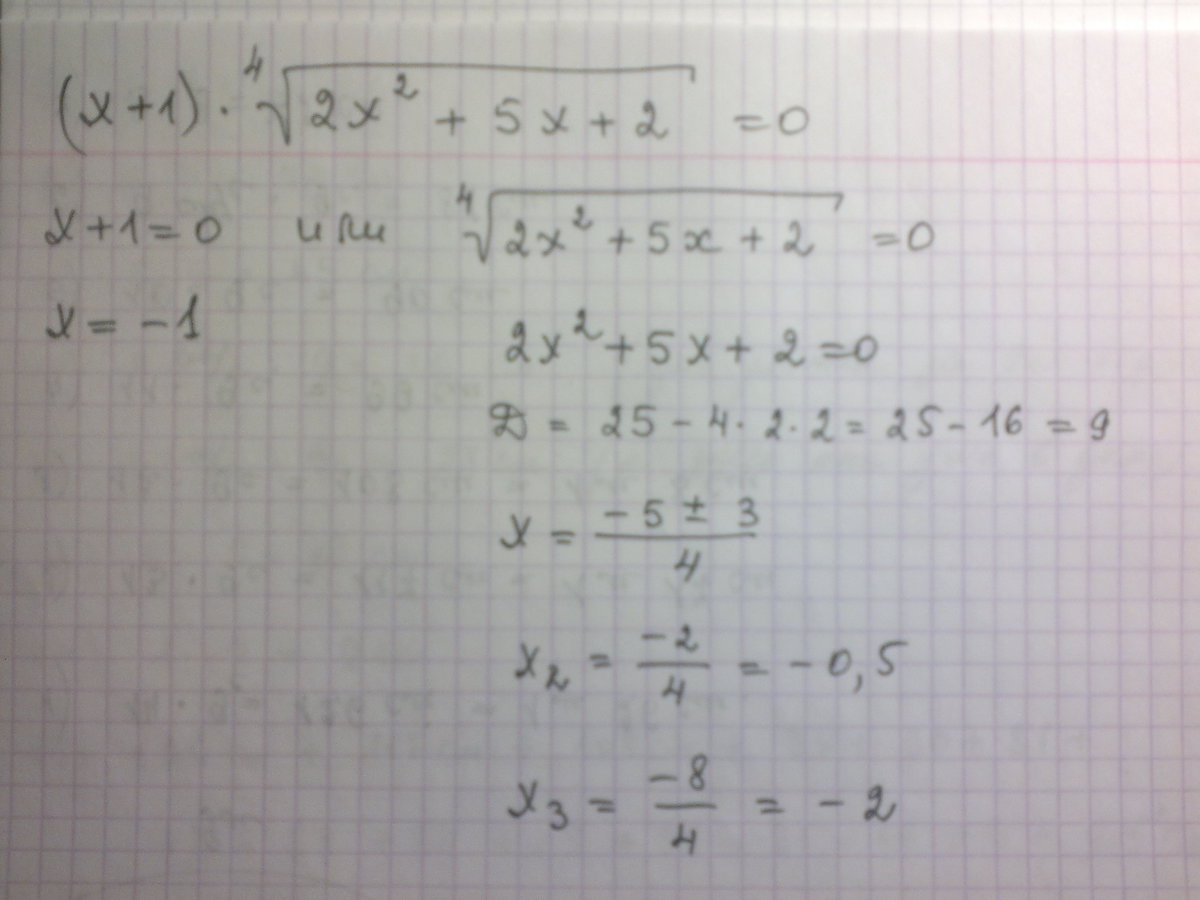 (x+1) · ⁴√(2x² + 5x + 2) = 0
x + 1 = 0 или ⁴√(2x² + 5x + 2) = 0
x = -1 2x² + 5x + 2 = 0
D = 25 - 4 · 2 · 2 = 25 - 16 = 9
x = (-5 ± 3)/4
x₂ = -2/4 = -0,5
x₃ = -8/4 = -2